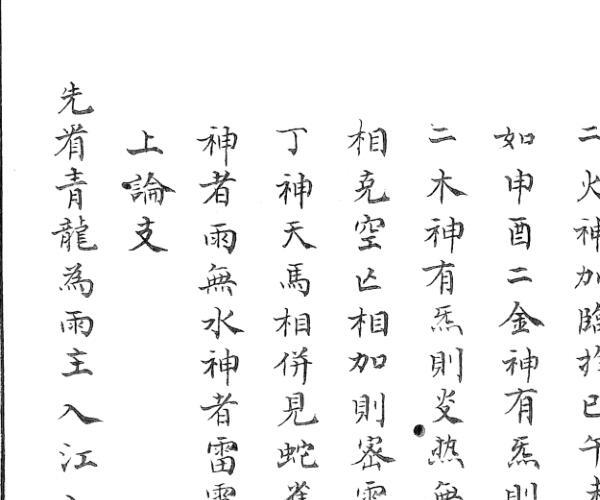 二火神加臨於巳午
如申酉二金神有炁則
二木神有炁則炎热無
相克空亾相加則宻雲
丁神天馬相併見蛇雀
神者雨無水神者雷電
上論支
先看青龍為雨主入江